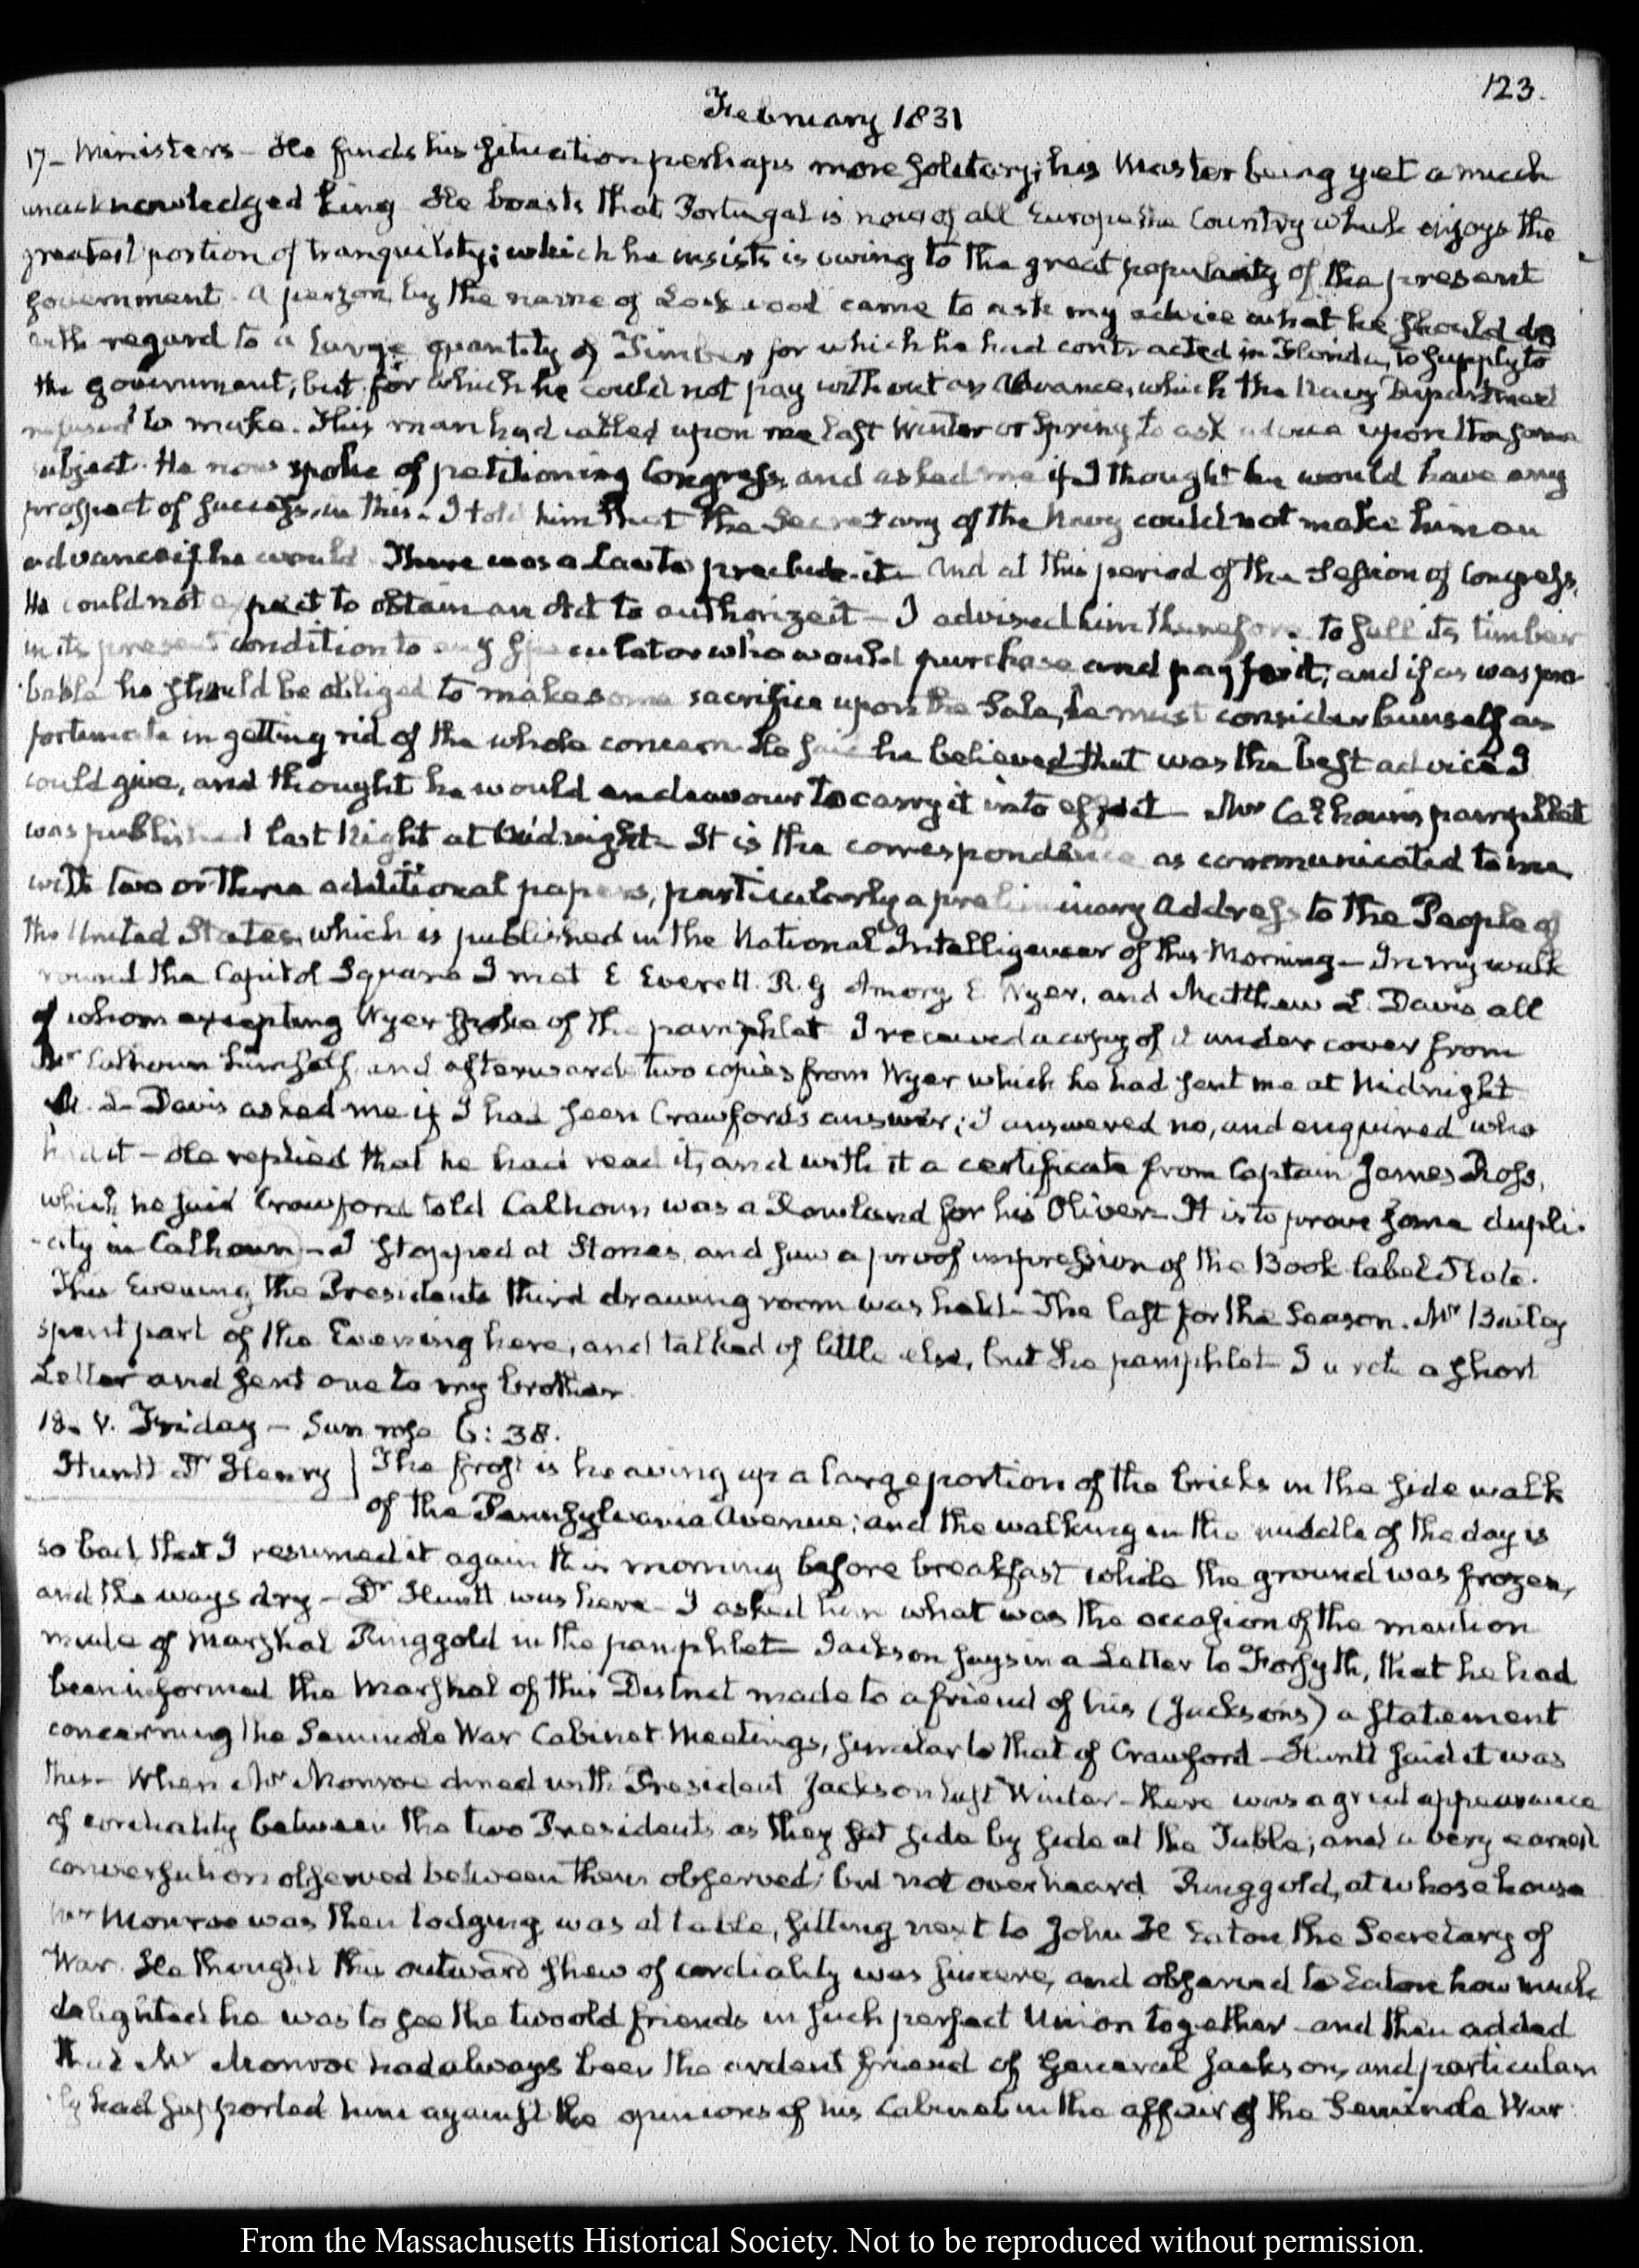 123.
February 1831
17– Ministers– He finds his Situation perhaps more Solitary; his Master being yet a much
unacknowledged King He boasts that Portugal is now of all Europe the Country which enjoys the
greatest portion of tranquility; which he insists is owing to the great popularity of the present
Government. A person by the name of came to ask my advice what he should do
with regard to a large quantity of Timber for which he had contracted in Florida, to supply to
the government; but for which he could not pay without an Advance, which the Navy Department
refused to make. This man had called upon me last Winter or Spring to ask advice upon the same
subject. He now spoke of petitioning Congress, and asked me if I thought he would have any
prospect of success in this. I told him that the Secretary of the Navy could not make him an
advance if he would There was a Law to preclude it– And at this period of the Session of Congress,
He could not expect to obtain an Act to authorize it– I advised him therefore to sell its timber
in its present condition to any speculator who would purchase and pay for it; and if as was pro-
bable he should be obliged to make some sacrifice upon the Sale, he must consider himself as
fortunate in getting rid of the whole concern. He said he believed that was the best advice I
could give, and thought he would endeavour to carry it into effect– Mr Calhoun's pamphlet
was published last Night at Midnight– It is the correspondence as communicated to me
with two or three additional papers, particularly a preliminary Address to the People of
the United States, which is published in the National Intelligencer of this Morning– In my walk
round the Capitol Square I met E Everett. R. G Amory, E Wyer, and Matthew L. Davis, all
of whom excepting Wyer spoke of the pamphlet I received a copy of it under cover from
Mr Calhoun himself, and afterwards two copies from Wyer which he had sent me at Midnight
M. L– Davis asked me if I had seen Crawford's answer; I answered no, and enquired who
had it– He replied that he had read it, and with it a certificate from Captain James Ross,
which he said Crawford told Calhoun was a Rowland for his Oliver– It is to prove some dupli-
-city in Calhoun– I stopped at Stones and saw a proof impression of the Book label Plate.
This Evening the Presidents third drawing room was held– The last for the Season. Mr Bailey
spent part of the Evening here, and talked of little else, but the pamphlet– I wrote a short
Letter and sent one to my brother
18. V. Friday– Sun rose 6:38.
Huntt Dr Henry | The frost is heaving up a large portion of the bricks in the side walk
of the Pennsylvania Avenue; and the walking in the middle of the day is
so bad, that I resumed it again this morning before breakfast while the ground was frozen,
and the ways dry– Dr Huntt was here– I asked him what was the occasion of the mention
made of Marshal Ringgold in the pamphlet– Jackson says in a Letter to Forsyth, that he had
been informed the Marshal of this District made to a friend of his (Jacksons) a statement
concerning the Seminole War Cabinet Meetings, similar to that of Crawford– Huntt said it was
this– When Mr Monroe dined with President Jackson last Winter– there was a great appearance
of cordiality between the two Presidents as they sat side by side at the Table; and a very earnest
conversation observed between them observed; but not overheard Ringgold, at whose house
Mr Monroe was then lodging, was at table, sitting next to John H Eaton the Secretary of
War. He thought this outward shew of cordiality was sincere, and observed to Eaton how much
delighted he was to see the two old friends in such perfect Union together– and then added
that Mr Monroe had always been the ardent friend of General Jackson, and particular-
ly had supported him against the opinions of his Cabinet in the affair of the Seminole War
From the Massachusetts Historical Society. Not to be reproduced without permission.